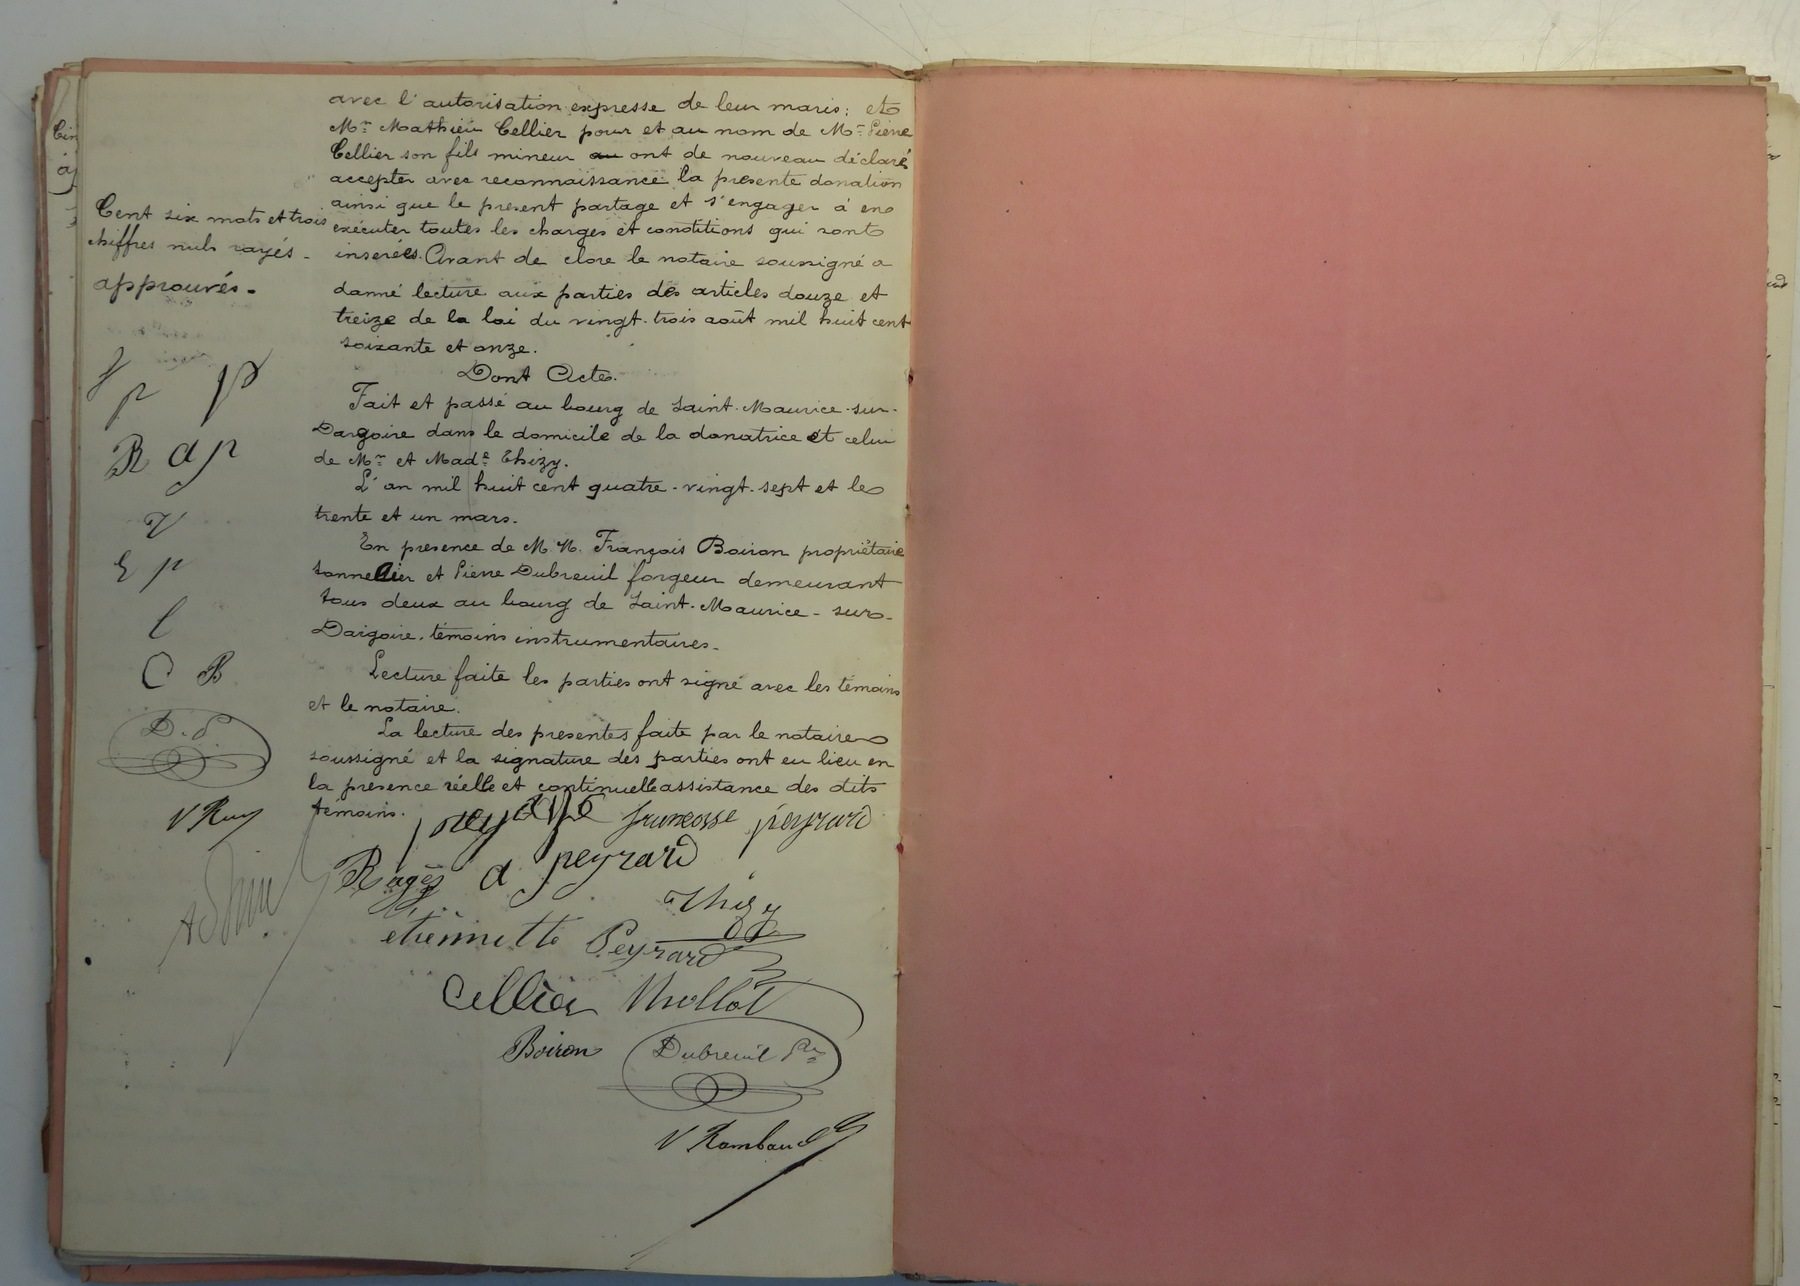 avec l'autorisation expresse de leur maris; et
Mr Mathieu Cellier pour et au nom de Mr Pierre
Cellier son fils mineur au ont de nouveau déclaré
accepter avec reconnaissance la presente donation
ainsi que le present partage et s'engager à en
exécuter toutes les charges et conditions qui sont
inserées. Avant de clore le notaire soussigné a
donné lecture aux parties des articles douze et
treize de la loi du vingt-trois août mil huit cent
soixante et onze.
Dont Acte.
Fait et passé au bourg de Saint-Maurice-sur-
Dargoire dans le domicile de la donatrice et celui
de Mr et Made Thizy.
L'an mil huit cent quatre-vingt-sept et le
trente et un mars.
En presence de M.M. François Boiron propriétaire
tonnelier et Pierre Dubreuil forgeur demeurant
tous deux au bourg de Saint-Maurice-sur-
Dargoire, témoins instrumentaires.
Lecture faite les parties ont signé avec les témoins
et le notaire.
La lecture des presentes faite par le notaire
soussigné et la signature des parties ont eu lieu en
la presence réelle et continuelle assistance des dits
témoins.
Cent six mots et trois
chiffres nuls rayés
approuvés.
B a p
E p
l
C B
D. d.
V Ram
peyrard
Ragès a peyrard
Thizy
etiennette Peyrard
Cellier Thollot
Boiron Dubreuil
V Rambaud
Cin